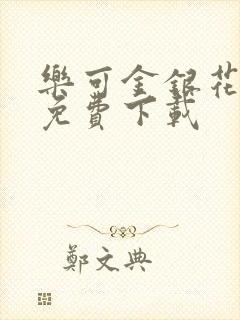 樂可金銀花
免費下載
鄭文典